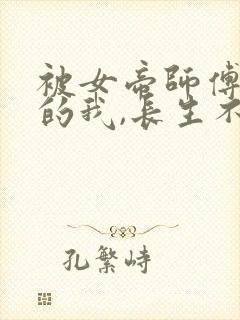 被女帝師傅
的我,長生不
孔繁峙